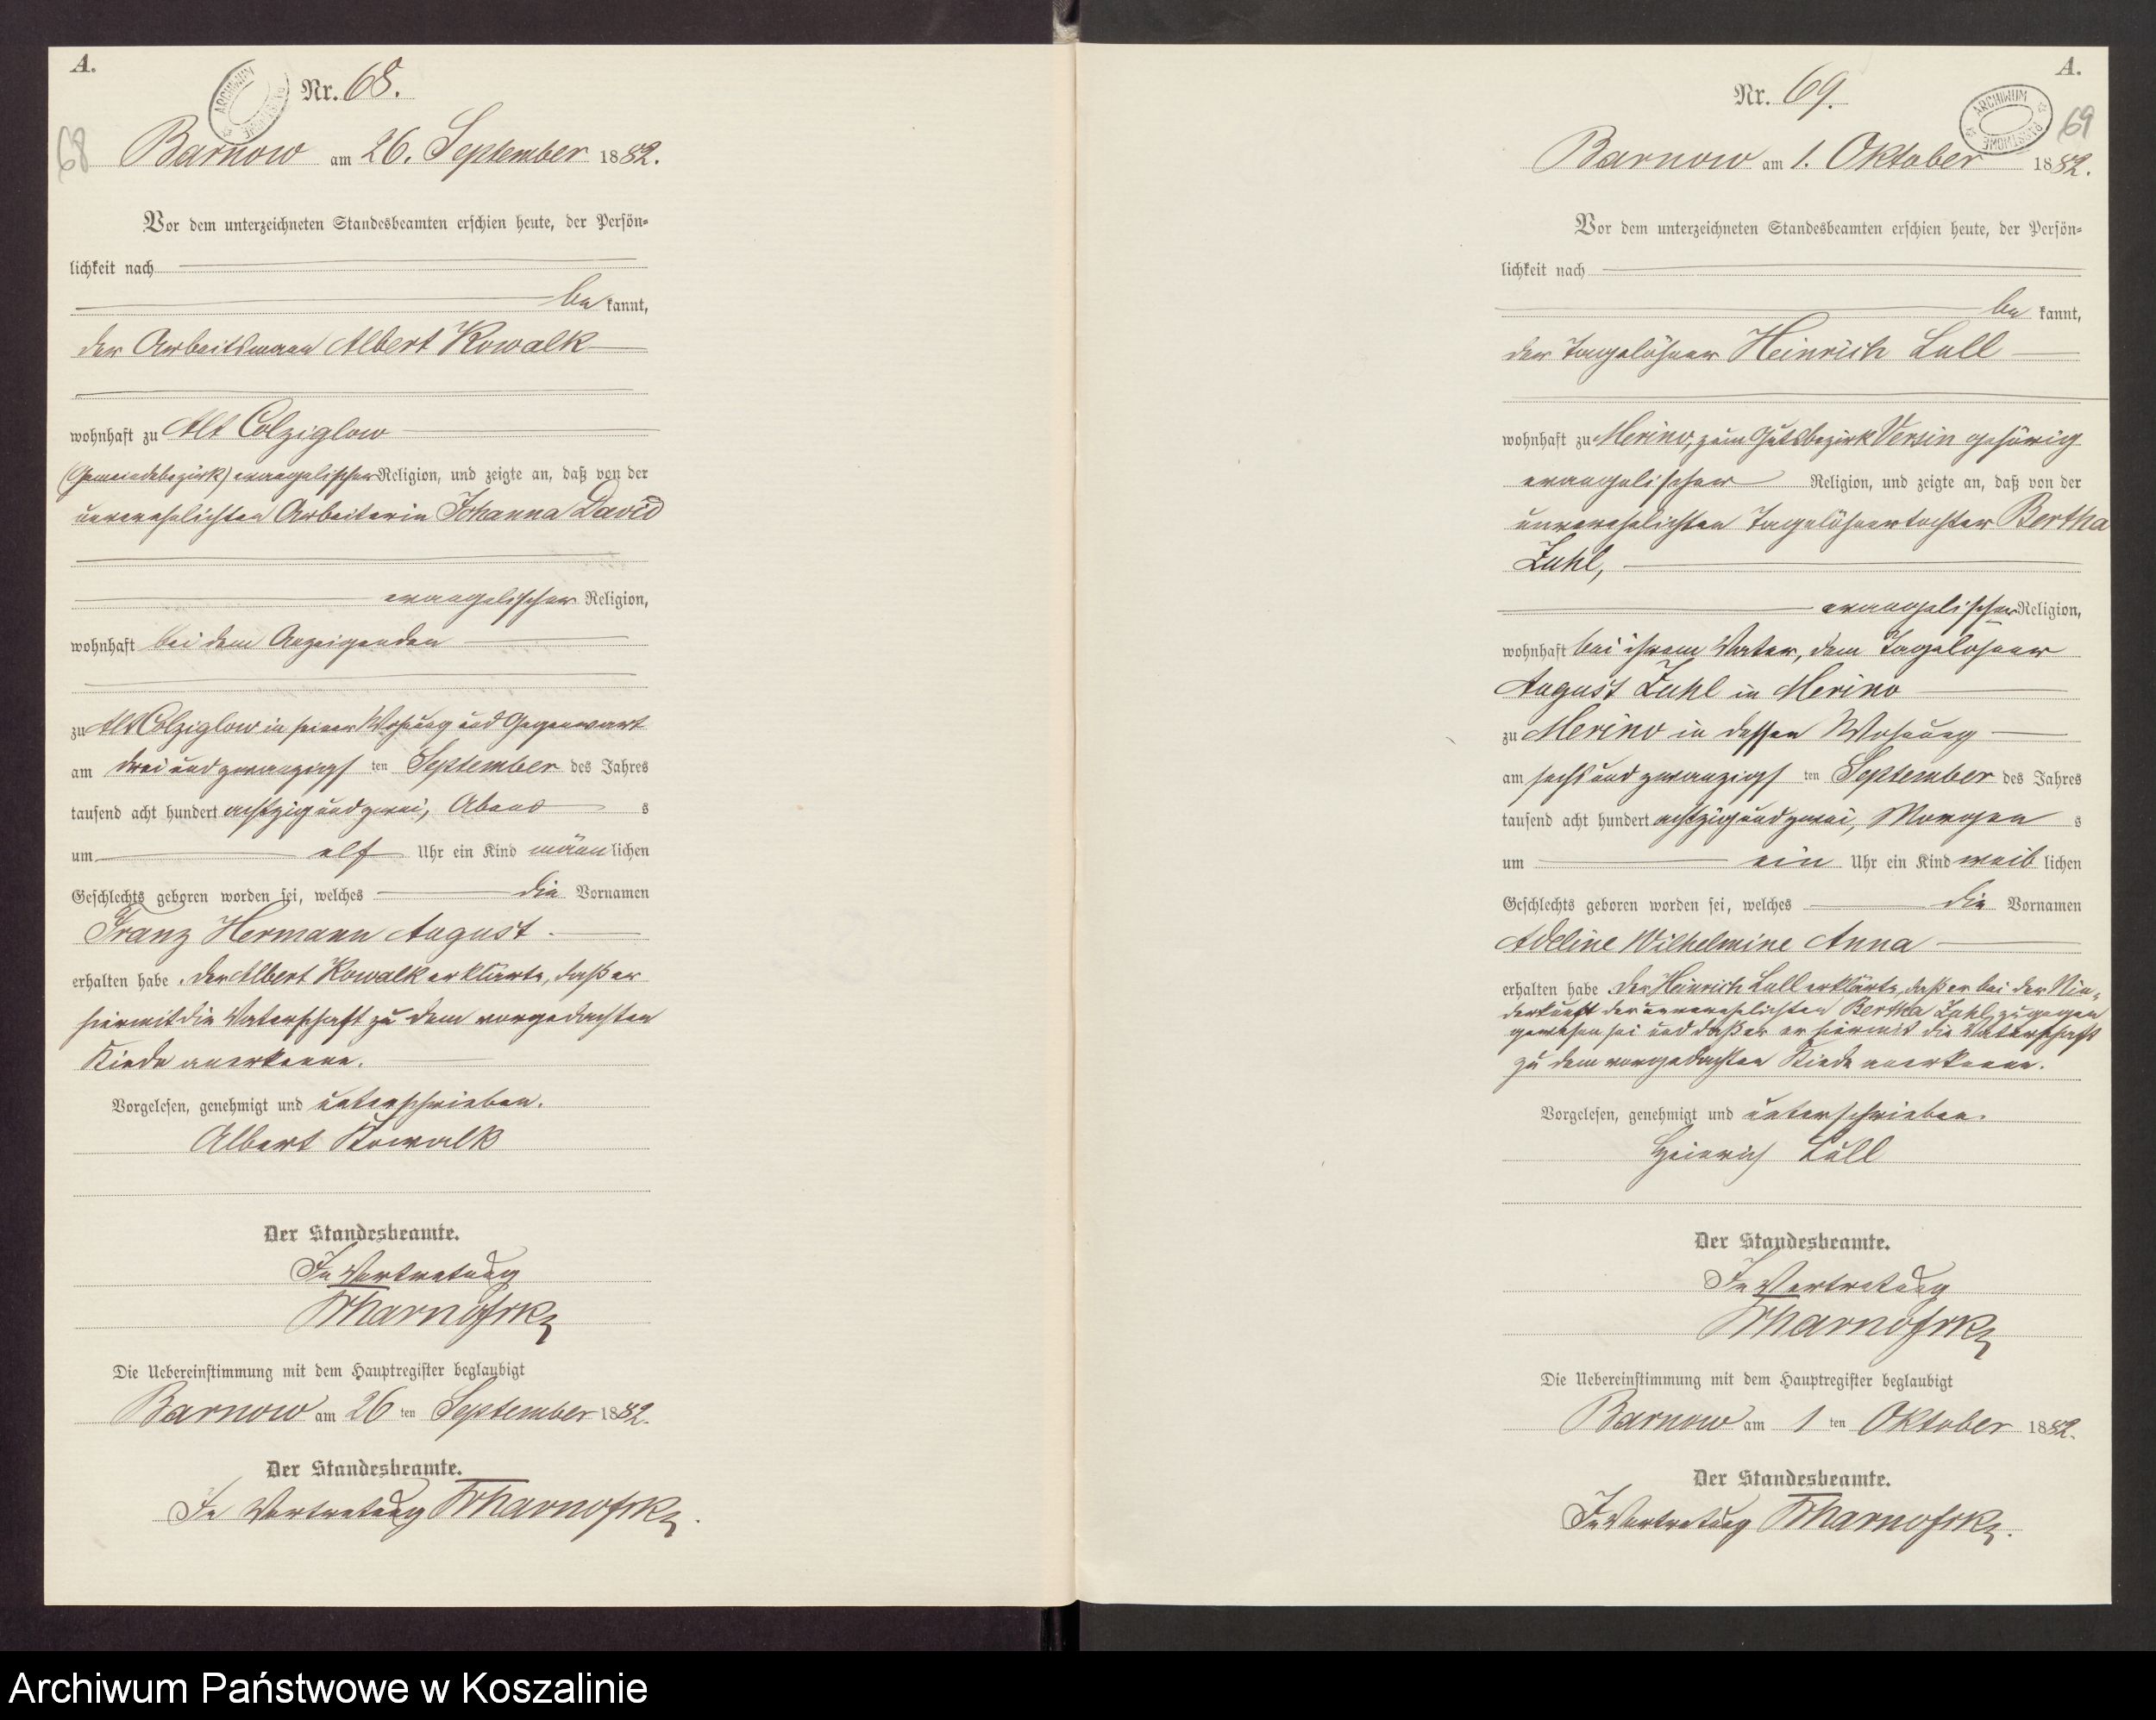 A.
ARCHIWUM
Nr. 68.
68
Barnow am 26. September 1882.
Vor dem unterzeichneten Standesbeamten erschien heute, der Persön-
lichkeit nach
be kannt,
der Arbeitsmann Albert Kowalk
wohnhaft zu Alt Colziglow
(Gemeindebezirk) evangelischer Religion, und zeigte an, daß von der
unverehelichten Arbeiterin Johanna David
evangelischer Religion,
wohnhaft bei dem Anzeigenden
zu Alt Colziglow in seiner Wohnung und Gegenwart
am drei und zwanzigs ten September des Jahres
tausend acht hundert achtzig und zwei, Abend s
um elf Uhr ein Kind männ lichen
Geschlechts geboren worden sei, welches die Vornamen
Franz Hermann August.
erhalten habe. Der Albert Kowalk erklärte, daß er
hiermit die Vaterschaft zu dem vorgedachten
Kinde anerkenne.
Vorgelesen, genehmigt und unterschrieben.
Albert Kowalk
Der Standesbeamte.
In Vertretung
Die Uebereinstimmung mit dem Hauptregister beglaubigt
Barnow am 26 ten September 1882.
Der Standesbeamte.
In Vertretung
A.
Nr. 69.
ARCHIWUM
69
Barnow am 1. Oktober 1882.
Vor dem unterzeichneten Standesbeamten erschien heute, der Persön-
lichkeit nach
be kannt,
der Tagelöhner Heinrich Lull
wohnhaft zu Merino, zum Gutsbezirk Versin gehörig
evangelischer Religion, und zeigte an, daß von der
unverehelichten Tagelöhnertochter Bertha
Zuhl,
evangelischer Religion,
wohnhaft bei ihrem Vater, dem Tagelöhner
August Zuhl in Merino
zu Merino in dessen Wohnung
am sechs und zwanzigs ten September des Jahres
tausend acht hundert achtzig und zwei, Morgen s
um ein Uhr ein Kind weib lichen
Geschlechts geboren worden sei, welches die Vornamen
Adeline Wilhelmine Anna
erhalten habe. Der Heinrich Lull erklärte, daß er bei der Nie-
derkunft der unverehelichten Bertha Zuhl zugegen
gewesen sei und daß er hiermit die Vaterschaft
zu dem vorgedachten Kinde anerkenne.
Vorgelesen, genehmigt und unterschrieben.
Heinrich Lull
Der Standesbeamte.
In Vertretung
Die Uebereinstimmung mit dem Hauptregister beglaubigt
Barnow am 1 ten Oktober 1882.
Der Standesbeamte.
In Vertretung
Archiwum Państwowe w Koszalinie